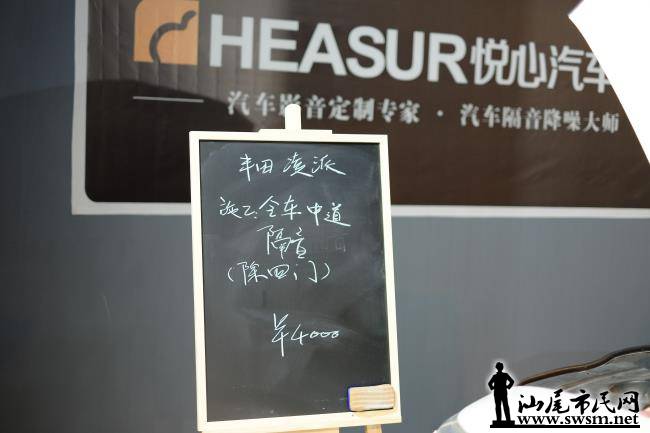 HEASUR 悦心汽车
汽车影音定制专家 · 汽车隔音降噪大师
丰田 凌派
施工:全车中道
隔音
(除四门)
¥4000
汕尾市民网
www.swsm.net